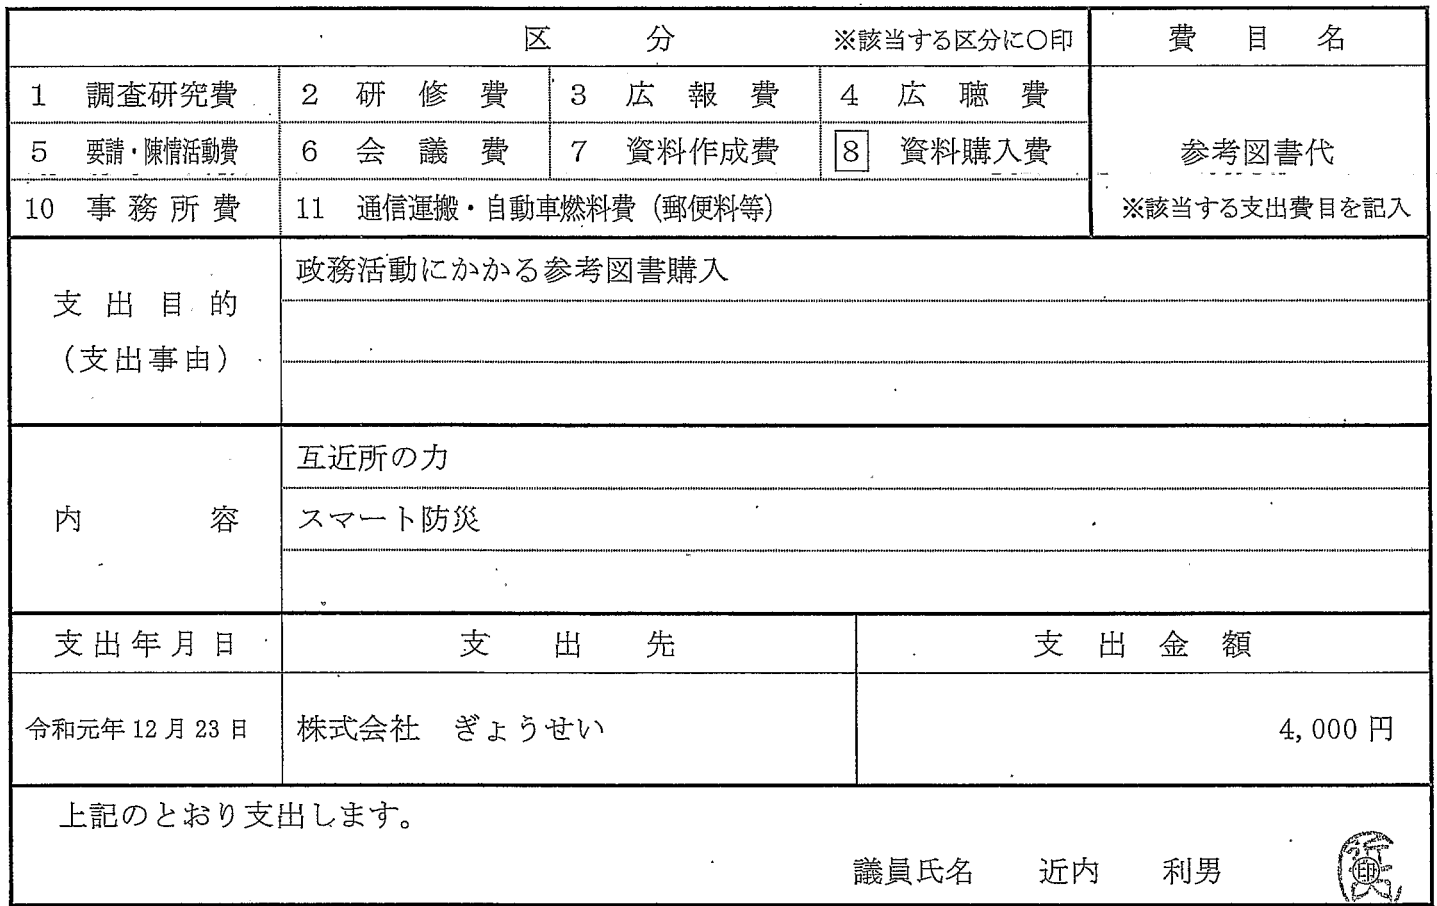 区 分 ※該当する区分に〇印 費 目 名
1 調査研究費 2 研 修 費 3 広 報 費 4 広 聴 費
5 要請・陳情活動費 6 会 議 費 7 資料作成費 8 資料購入費 参考図書代
10 事務所費 11 通信運搬・自動車燃料費(郵便料等) ※該当する支出費目を記入
政務活動にかかる参考図書購入
支出目的
(支出事由)
互近所の力
内 容 スマート防災
支出年月日 支 出 先 支 出 金 額
令和元年12月23日 株式会社 ぎょうせい 4,000円
上記のとおり支出します。
議員氏名 近内 利男 印